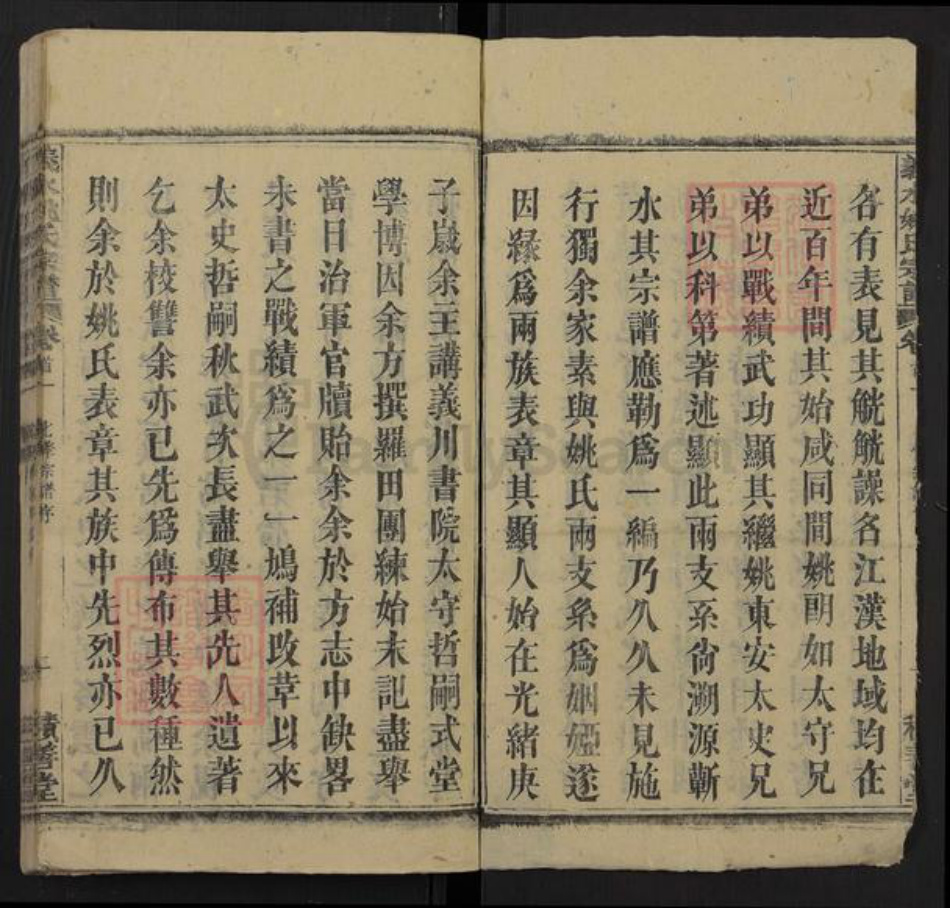 各有表見其觥觥譟名江漢地域均在
近百年間其始咸同間姚朗如太守兄
弟以戰績武功顯其繼姚東安太史兄
弟以科第著述顯此兩支系尙溯源蘄
水其宗譜應勒爲一編乃久久未見施
行獨余家素與姚氏兩支系爲姻婭遂
因緣爲兩族表章其顯人始在光緒庚
子歲余主講義川書院太守哲嗣式堂
學博因余方撰羅田團練始末記盡舉
當日治軍官牘貽余余於方志中缺畧
未書之戰績爲之一一鳩補攻草以來
太史哲嗣秋武次長盡舉其先人遺著
乞余校讐余亦已先爲傳布其數種然
則余於姚氏表章其族中先烈亦已久
義水姚氏宗譜
卷首一
宗譜序
積善堂